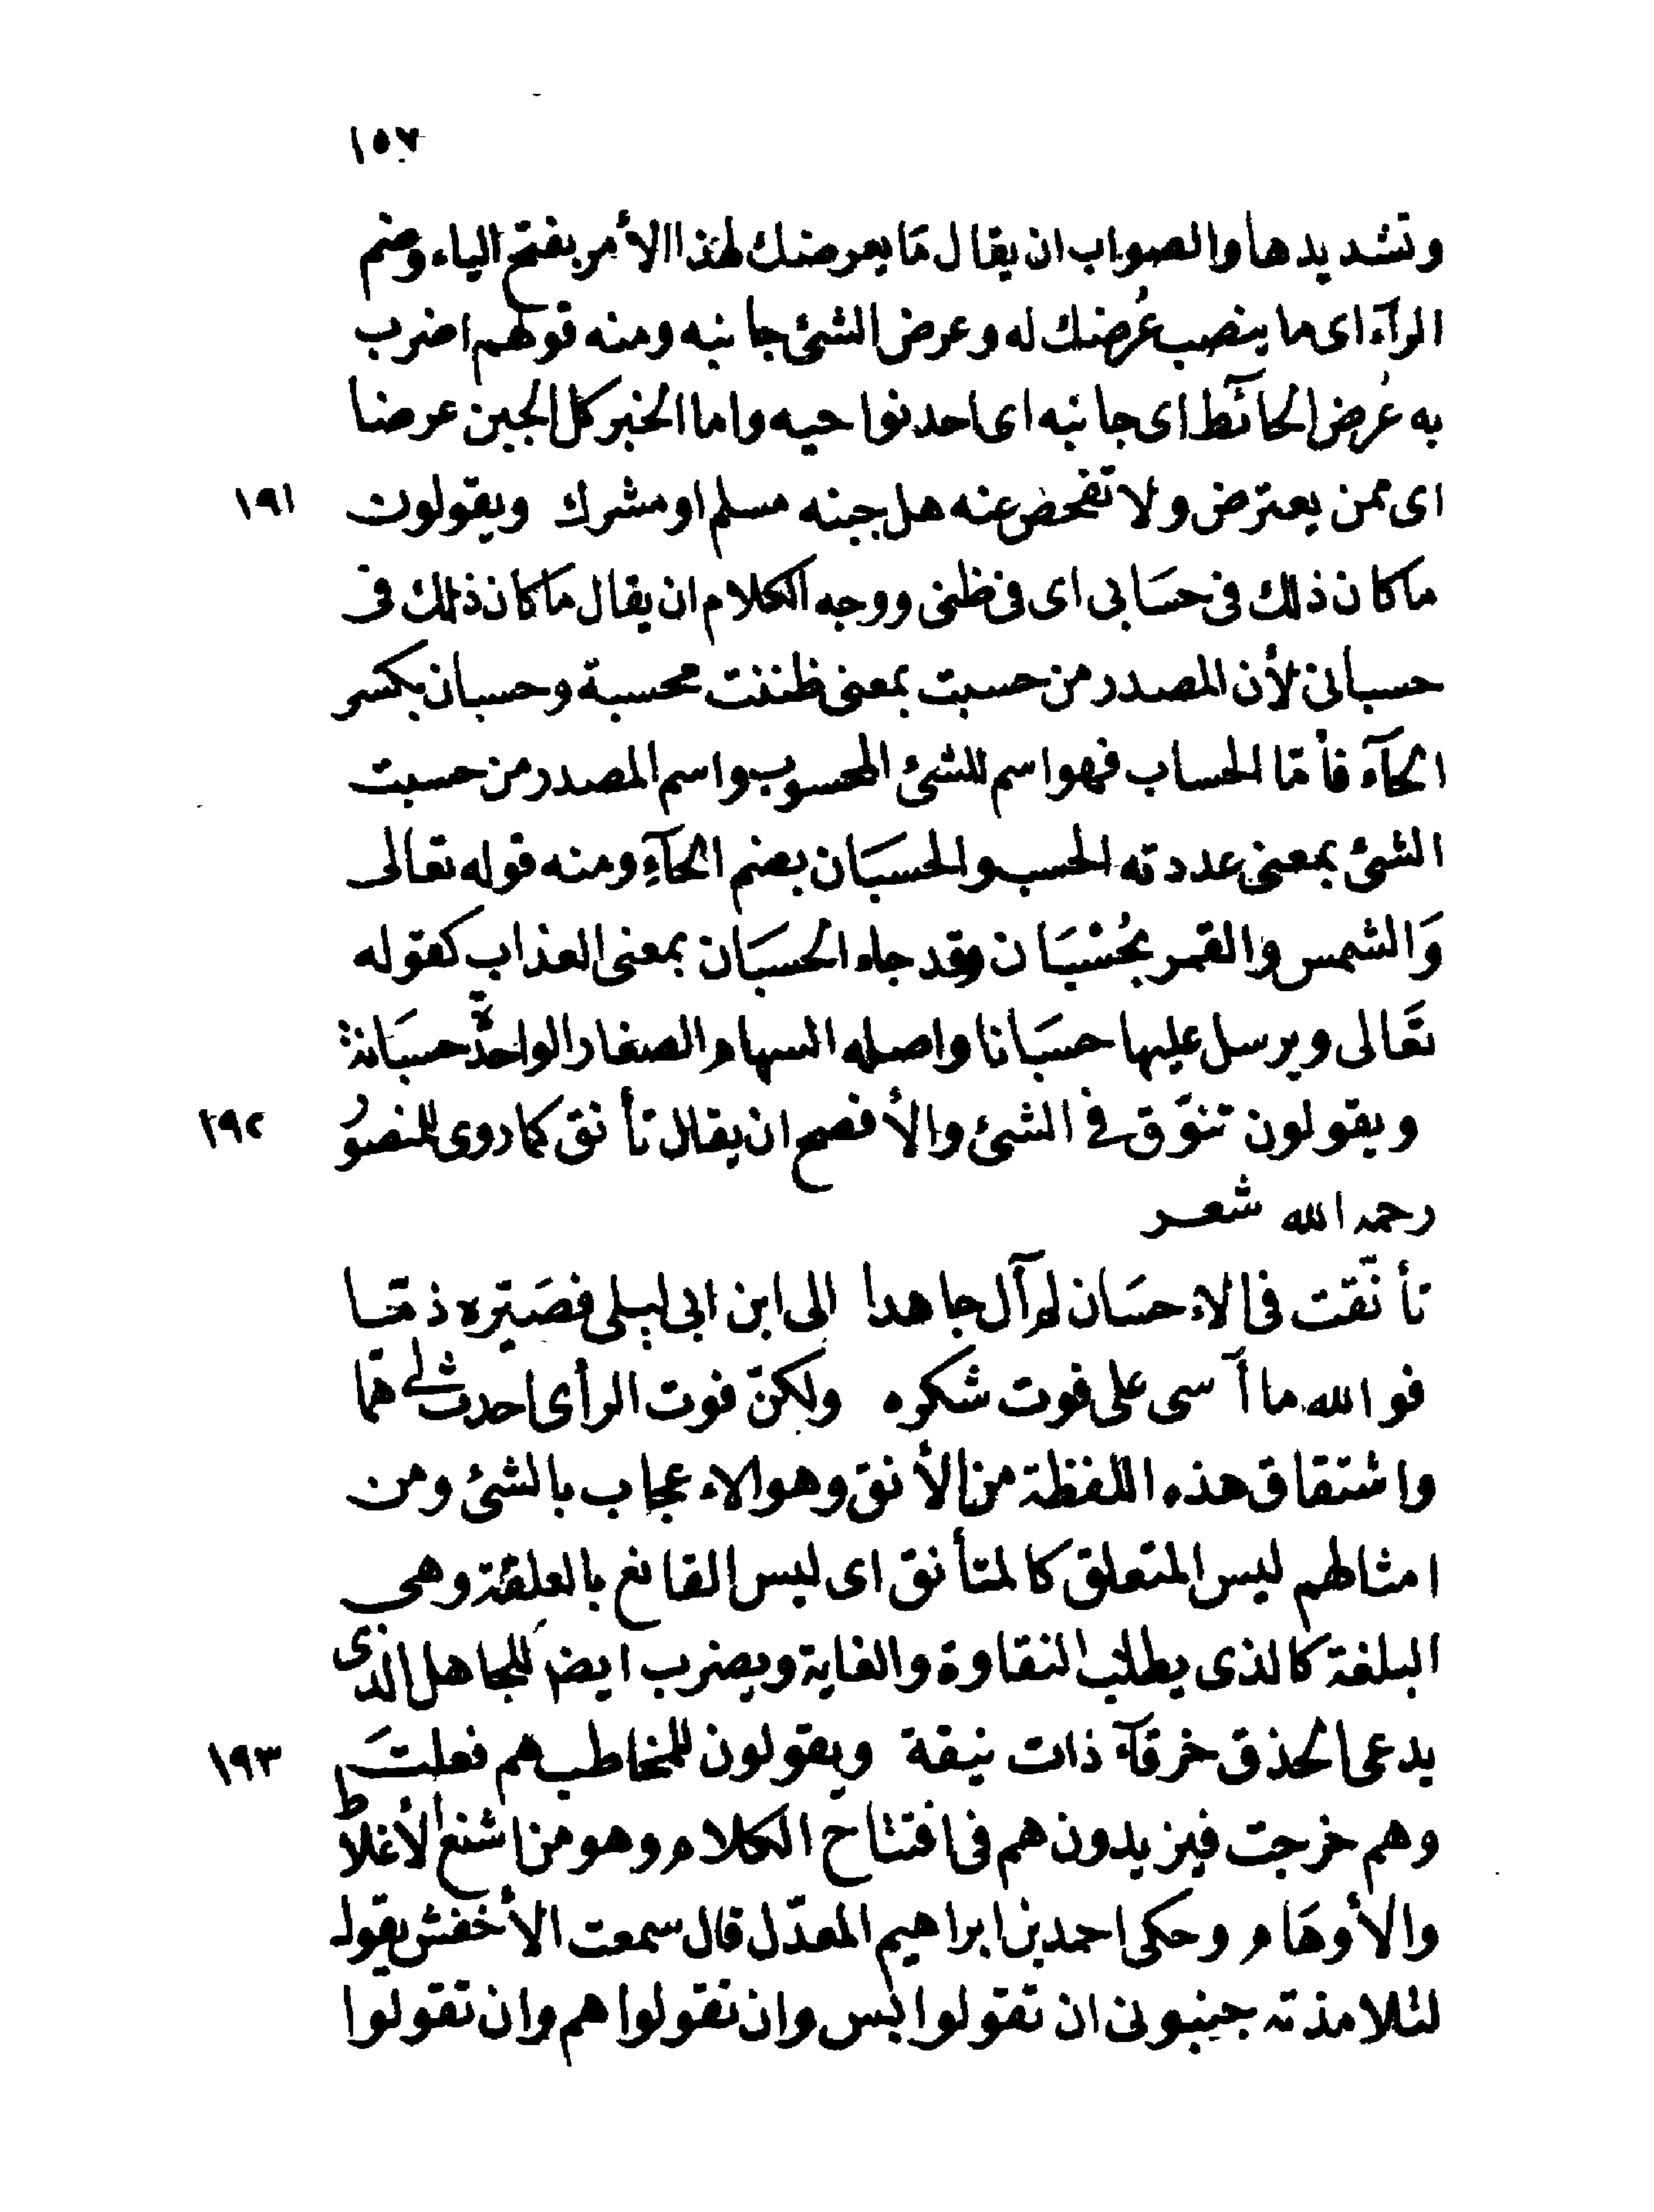 ١٥٧
وتشديدها والصواب ان يقال مَا يعرضك لهذا الأمر بفتح الياء وضم
الرآء اى ما ينصب عُرضك له وعرض الشئ جانبه ومنه قولهم اضرب
به عُرض الحائط اى جانبه اى احد نواحيه واما الخبر كل الجبن عرضا
اى ممن يعترض ولا تفحض عنه هل جبنه مسلم او مشرك ويقولون ١٩١
ما كان ذلك فى حسَابى اى فى ظنى ووجه الكلام ان يقال مَا كان ذلك فى
حسبانى لأن المصدر من حسبت بمعنى ظننت محسبة وحسبان بكسر
الحآء فأمّا الحساب فهو اسم للشئ المحسوب واسم المصدر من حسبت
الشئ بمعنى عددته الحسب والحسبَان بضم الحآءِ ومنه قوله تعالى
وَالشمس والقمر بحُسْبَان وقد جاء الحسبَان بمعنى العذاب كقوله
تعَالى ويرسل عليها حسبَانا واصله السهام الصغار الواحدة حسبَانة
ويقولون تنوّق فى الشئ والأفصح ان يقال تأنق كما روى للمنصُور ١٩٢
رحمه الله شعر
تأنّقت فى الاءحسَان لم آل جاهدا الى ابن ابى ليلى فصَيّره ذمّا
فوالله ما آسى على فوت شكره ولكنّ فوت الرأى احدث لى همّا
واشتقاق هذه اللفظة من الأنق وهو الاءعجاب بالشئ ومن
امثالهم ليس المتعلق كالمتأنق اى ليس القانع بالعلقة وهى
البلغة كالذى يطلب النقاوة والغاية ويضرب ايضَ للجاهل الذى
يدعى الحذق خرقآء ذات نيقة ويقولون للمخاطب هم فعلتَ ١٩٣
وهم خرجت فيزيدون هم فى افتتاح الكلام وهو من اشنع الأغلاط
والأوهَام وحكى احمد بن ابراهيم المعدّل قال سمعت الأخفش يقول
لتلامذته جنبونى ان تقولوا بس وان تقولوا هم وان تقولوا